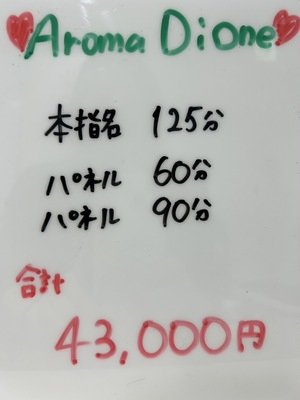 Aroma Dione
本指名 125分
パネル 60分
パネル 90分
合計
43,000円